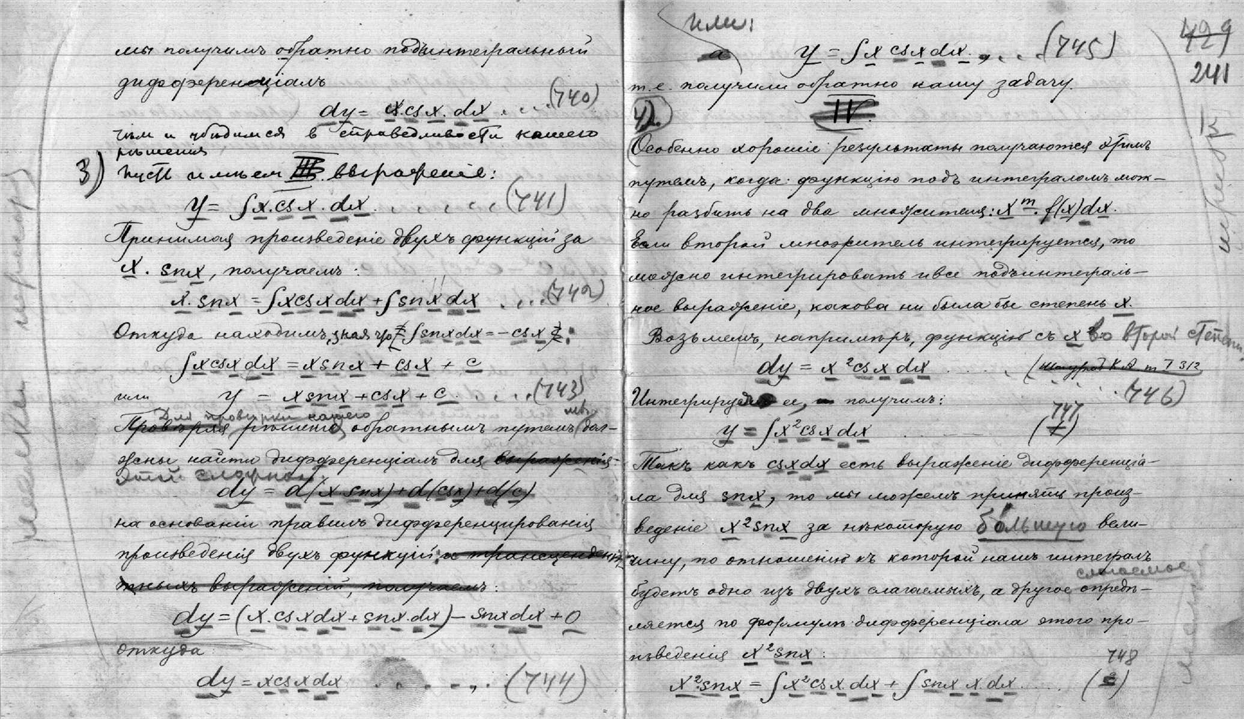 мы получимъ обратно подъинтегральный
дифференціалъ
dy = x.csx.dx .... (740)
чѣмъ и убѣдимся в справедливости нашего
рѣшенія
3) Пусть имѣемъ III выраженіе:
y = ∫x.csx.dx. .... (741)
Принимая произведеніе двухъ функцій за
x. snx, получаемъ:
x.snx = ∫xcsxdx + ∫snxdx .... (742)
Откуда находимъ, зная что ∫snxdx = -csx:
∫xcsxdx = xsnx + csx + c
или y = xsnx + csx + c .... (743)
Для провѣрки нашего
рѣшенія обратнымъ путемъ мы дол-
жны найти дифференціалъ для выраженія
этой
dy = d(x snx) + d(csx) + d(c)
на основаніи правилъ дифференцированія
произведенія двухъ функцій: и трансценден-
тныхъ выраженій, получаемъ:
dy = (x.csxdx + snx.dx) - snxdx + 0
откуда
dy = xcsxdx .... (744)
или:
y = ∫x csxdx .... (745)
429
241
т.е. получили обратно нашу задачу.
4) IV
Особенно хорошіе результаты получаются этимъ
путемъ, когда: функцію подъ интеграломъ мож-
но разбить на два множителя: x^m. f(x)dx.
Если второй множитель интегрируется, то
можно интегрировать и все подъинтеграль-
ное выраженіе, какова ни была бы степень x.
Возьмемъ, напримѣръ, функцію съ x во второй степени
dy = x²csxdx .... (746)
Интегрируя ее, получимъ:
y = ∫x²csxdx .... (747)
Такъ какъ csxdx есть выраженіе дифференціа-
ла для snx, то мы можемъ принять произ-
веденіе x²snx за нѣкоторую большую вели-
чину, по отношенію къ которой нашъ интегралъ
слагаемое
будетъ одно изъ двухъ слагаемыхъ, а другое опредѣ-
ляется по формулѣ дифференціала этого про-
изведенія x²snx:
x²snx = ∫x²csxdx + ∫snx x.dx .... (748)